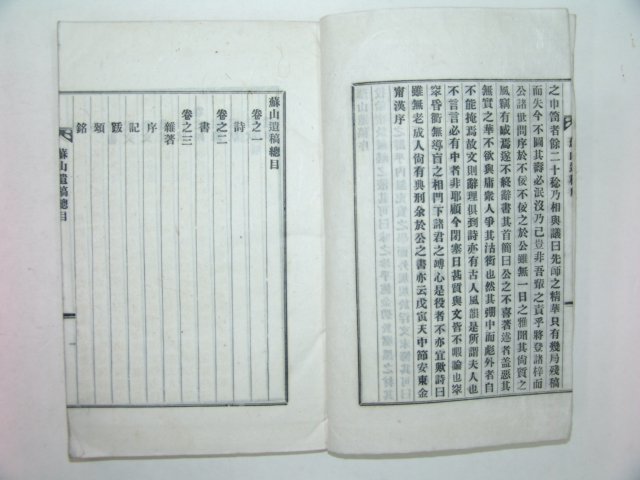 之中箇者餘二十稔乃相與議曰先師之精華只有幾局殘稿
而失今不圖其壽必泯沒乃已豈非吾輩之責乎將登諸梓而
公諸世問序於不佞不佞之於公雖無一日之雅聞其尙質之
風竊有感焉遂不終辭書其首簡曰公之不喜著述者蓋惡其
無實之華不欲與庸衆人爭其沽衒也然其弸中而彪外者自
不能掩焉故文則辭理俱到詩亦有古人風韻是所謂夫人也
不言言必有中者非耶顧今閉塞日甚質與文皆不暇論也寀
寀昏衢無導盲之相門下諸君之溥心是役者不亦宜歟詩曰
雖無老成人尙有典刑余於公之書亦云戊寅天中節安東金
甯漢序
蘇山遺稿總目
卷之一
詩
卷之二
書
卷之三
雜著
序
記
跋
頌
銘
蘇山遺稿總目